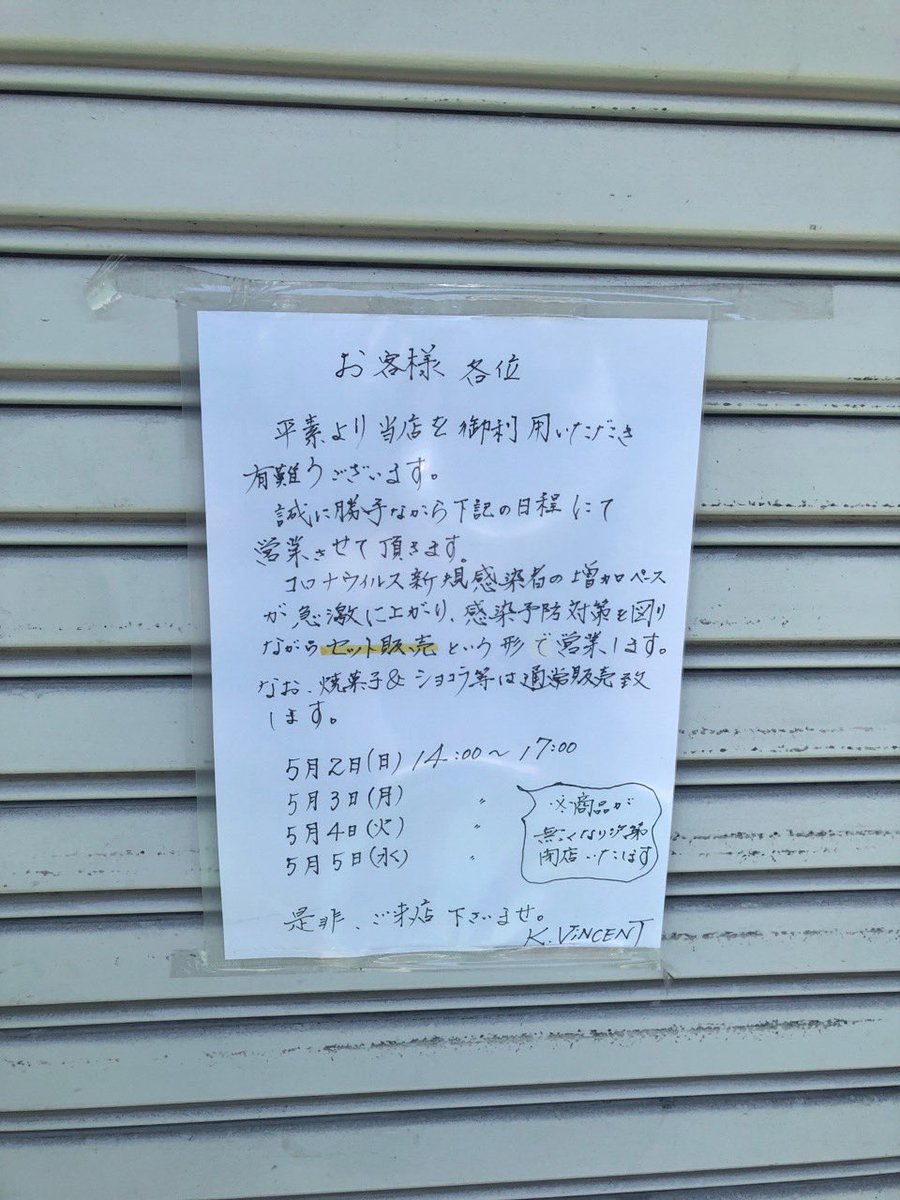 お客様 各位
平素より当店を御利用いただき
有難うございます。
誠に勝手ながら下記の日程にて
営業させて頂きます。
コロナウィルス新規感染者の増加ペース
が急激に上がり、感染予防対策を図り
ながらセット販売という形で営業します。
なお、焼菓子&ショコラ等は通常販売致
します。
5月2日(日) 14:00～17:00
5月3日(月) 〃
5月4日(火) 〃
5月5日(水) 〃
※商品が
無くなり次第
閉店いたします
是非、ご来店下さいませ。
K.VINCENT